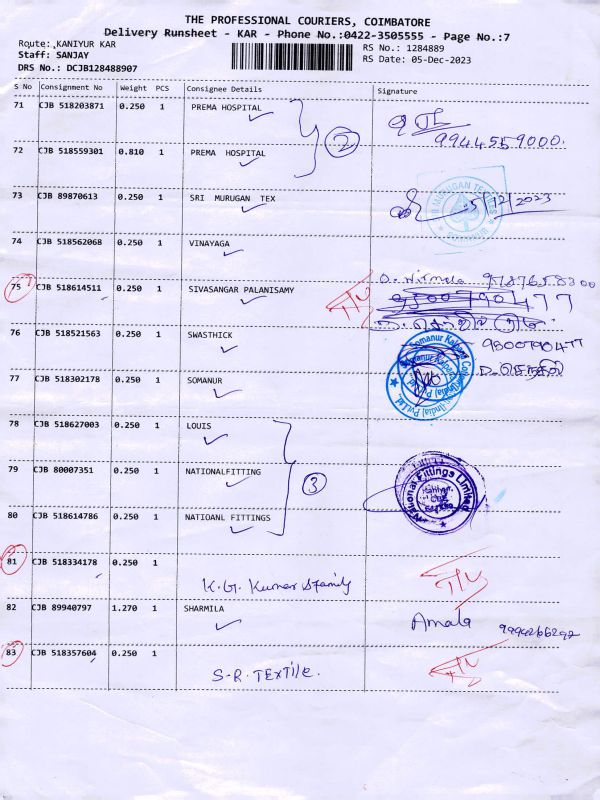 THE PROFESSIONAL COURIERS, COIMBATORE
Delivery Runsheet - KAR - Phone No.:0422-3505555 - Page No.:7
Route: KANIYUR KAR
RS No.: 1284889
Staff: SANJAY
RS Date: 05-Dec-2023
DRS No.: DCJB128488907
S No Consignment No Weight PCS Consignee Details Signature
71 CJB 518203871 0.250 1 PREMA HOSPITAL
9944559000.
2
72 CJB 518559301 0.810 1 PREMA HOSPITAL
73 CJB 89870613 0.250 1 SRI MURUGAN TEX 5/12/2023
74 CJB 518562068 0.250 1 VINAYAGA
75 CJB 518614511 0.250 1 SIVASANGAR PALANISAMY
9500790477
76 CJB 518521563 0.250 1 SWASTHICK
77 CJB 518302178 0.250 1 SOMANUR
78 CJB 518627003 0.250 1 LOUIS
79 CJB 80007351 0.250 1 NATIONALFITTING
3
National Fittings Limited
80 CJB 518614786 0.250 1 NATIOANL FITTINGS
81 CJB 518334178 0.250 1
K.G. Kumar Sfamily
82 CJB 89940797 1.270 1 SHARMILA Amala
83 CJB 518357604 0.250 1
S-R. TEXTILE.